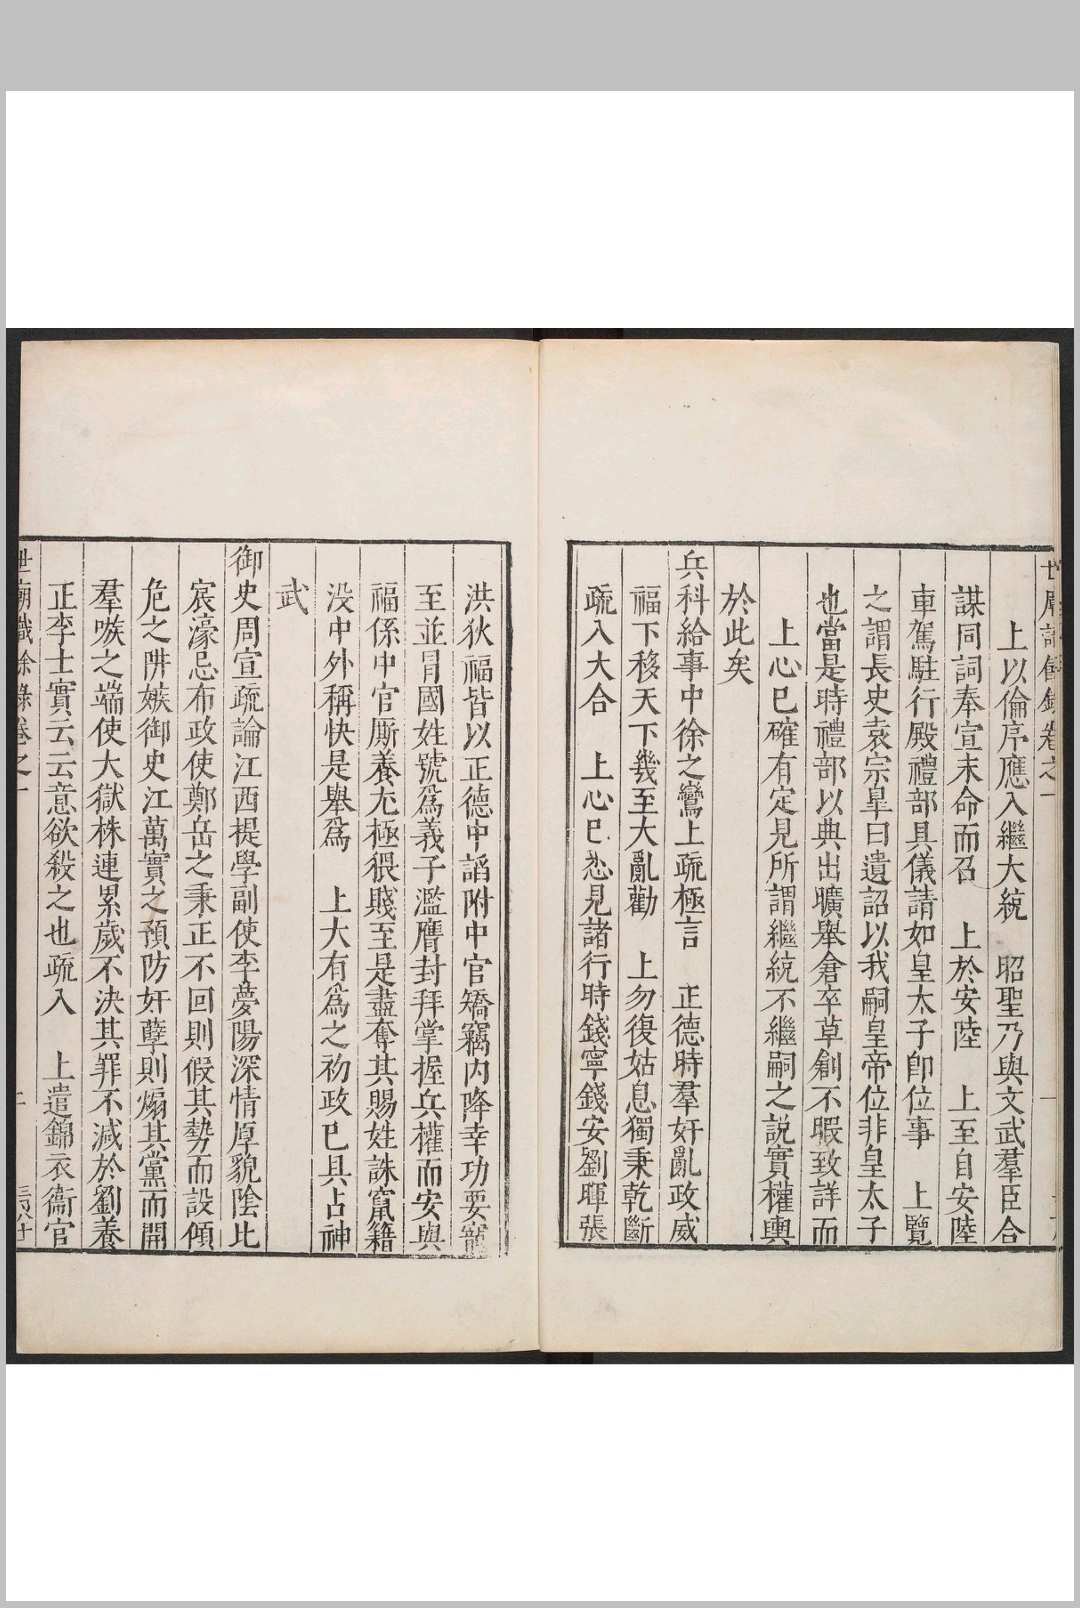 世廟識餘錄卷之一
上以倫序應入繼大統　昭聖乃與文武羣臣合
謀同詞奉宣末命而召　上於安陸　上至自安陸
車駕駐行殿禮部具儀請如皇太子卽位事　上覽
之謂長史袁宗皐曰遺詔以我嗣皇帝位非皇太子
也當是時禮部以典出曠舉倉卒草創不暇致詳而
上心已確有定見所謂繼統不繼嗣之說實權輿
於此矣
兵科給事中徐之鸞上疏極言　正德時羣奸亂政威
福下移天下幾至大亂勸　上勿復姑息獨秉乾斷
疏入大合　上心已悉見諸行時錢寧錢安劉暉張
洪狄福皆以正德中謟附中官矯竊內降幸功要寵
至並冐國姓號爲義子濫膺封拜掌握兵權而安與
福係中官厮養尤極猥賤至是盡奪其賜姓誅竄籍
没中外稱快是舉爲　上大有爲之初政已具占神
武
御史周宣疏論江西提學副使李夢陽深情厚貌陰比
宸濠忌布政使鄭岳之秉正不回則假其勢而設傾
危之阱嫉御史江萬實之預防奸孽則煽其黨而開
羣嗾之端使大獄株連累歲不決其罪不減於劉養
正李士實云云意欲殺之也疏入　上遣錦衣衞官
世廟識餘錄卷之一